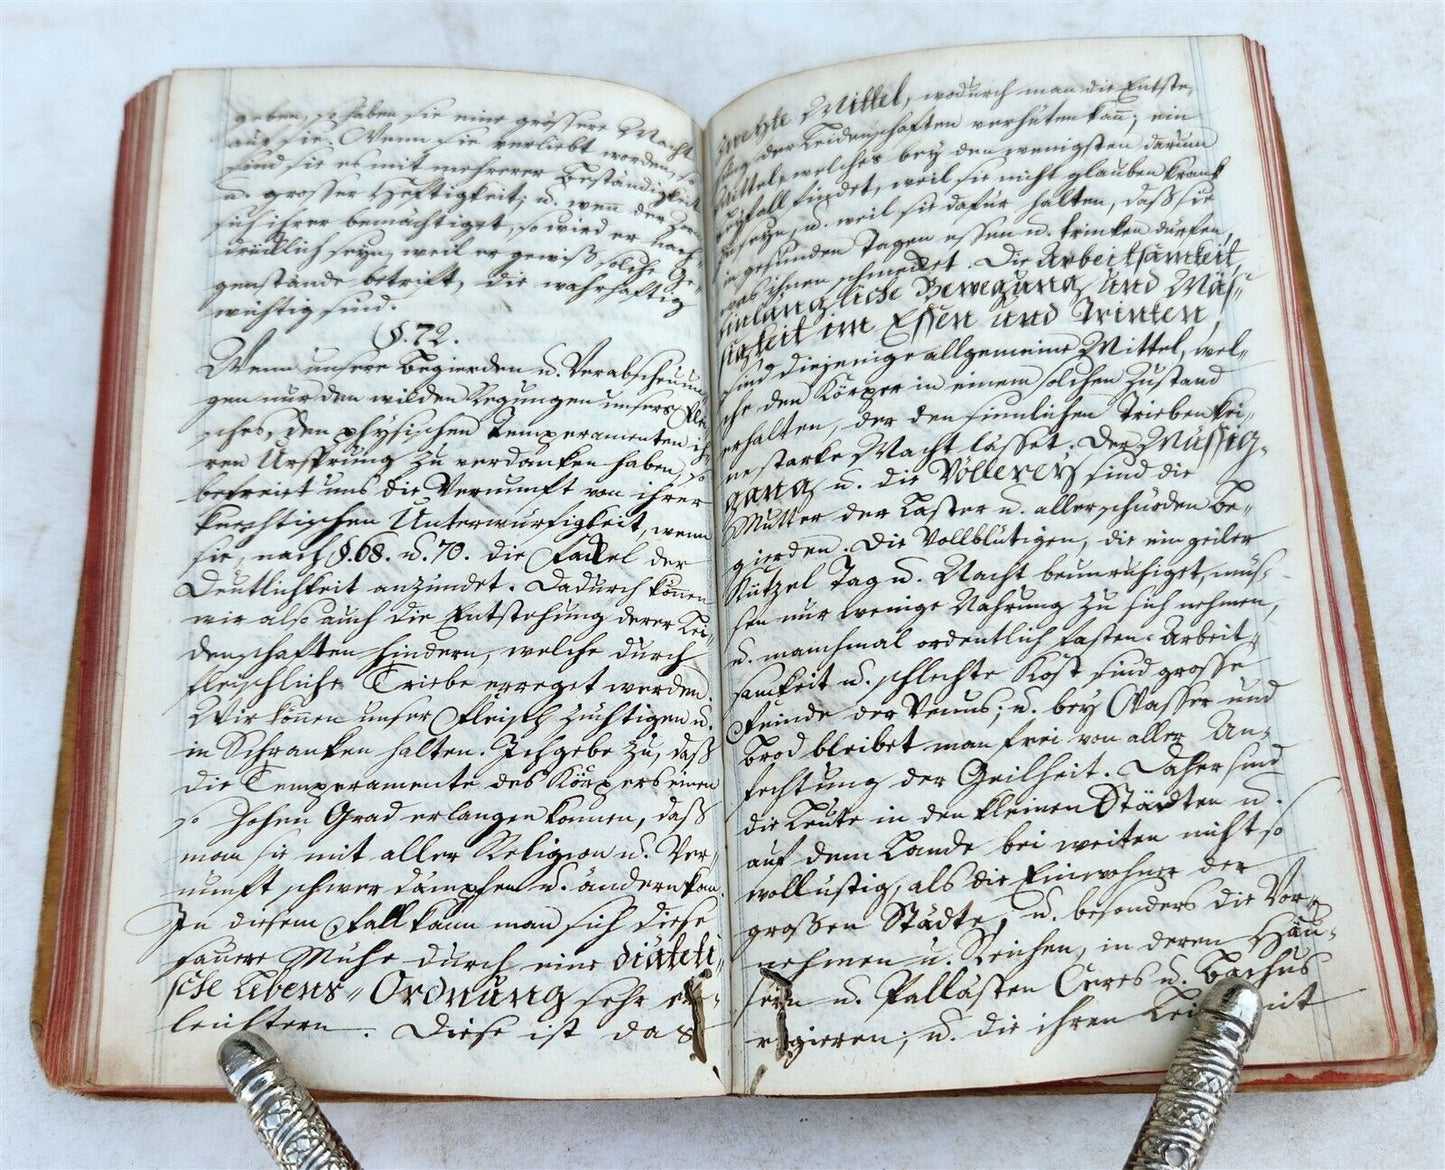 geben, so haben sie eine grössere Macht
auf sie. Wenn sie verliebt worden, so
sind sie es mit mehrerer Beständigkeit
u. grosser Heftigkeit; u. wenn der Zorn
sich ihrer bemächtiget, so wird er
seyn, weil er gewiß solche Ge-
genstände betrift, die wahrhaftig
wichtig sind.
§. 72.
Wenn unsere Begierden u. Verabscheuun-
gen nur den wilden Regungen unsers Flei-
sches, den physischen Temperamenten ih-
ren Ursprung zu verdanken haben, so
befreiet uns die Vernunft von ihrer
knechtischen Unterwürfigkeit, wenn
sie nach §. 68. u. 70. die Fackel der
Deutlichkeit anzündet. Dadurch können
wir also auch die Entstehung derer Lei-
denschaften hindern, welche durch
fleischliche Triebe erreget werden.
Wir können unser Fleisch züchtigen u.
in Schranken halten. Ich gebe zu, daß
die Temperamente des Körpers einen
so hohen Grad erlangen können, daß
man sie mit aller Religion u. Ver-
nunft schwer dämpfen u. ändern kan.
In diesem Fall kann man sich diese
sauere Mühe durch eine diäteti-
sche Lebens-Ordnung sehr er-
leichtern. Diese ist das
Mittel, wodurch man die Entste-
hung der Leidenschaften verhüten kan; ein
Mittel, welches bey den wenigsten darum
Beyfall findet, weil sie nicht glauben krank
zu seyn, u. weil sie dafür halten, daß sie
in gesunden Tagen essen u. trinken dürfen,
was ihnen schmecket. Die Arbeitsamkeit,
hinlängliche Bewegung und Mäs-
sigkeit im Essen und Trinken,
sind diejenige allgemeine Mittel, wel-
che den Körper in einem solchen Zustand
erhalten, der den sinnlichen Trieben kei-
ne starke Macht lässet. Der Müssig-
gang u. die Völlerey sind die
Mutter der Laster u. aller schnöden Be-
gierden. Die Vollblütigen, die ein geiler
Kützel Tag u. Nacht beunruhiget, müs-
sen nur wenige Nahrung zu sich nehmen,
u. manchmal ordentlich fasten. Arbeit-
samkeit u. schlechte Kost sind grosse
Feinde der Venus; u. bey Wasser und
Brod bleibet man frei von aller An-
fechtung der Geilheit. Daher sind
die Leute in den kleinen Städten u.
auf dem Lande bei weiten nicht so
wollüstig, als die Einwohner der
großen Städte, u. besonders die Vor-
nehmen u. Reichen, in deren Häu-
sern u. Pallästen Ceres u. Bachus
regieren; u. die ihren Leib mit